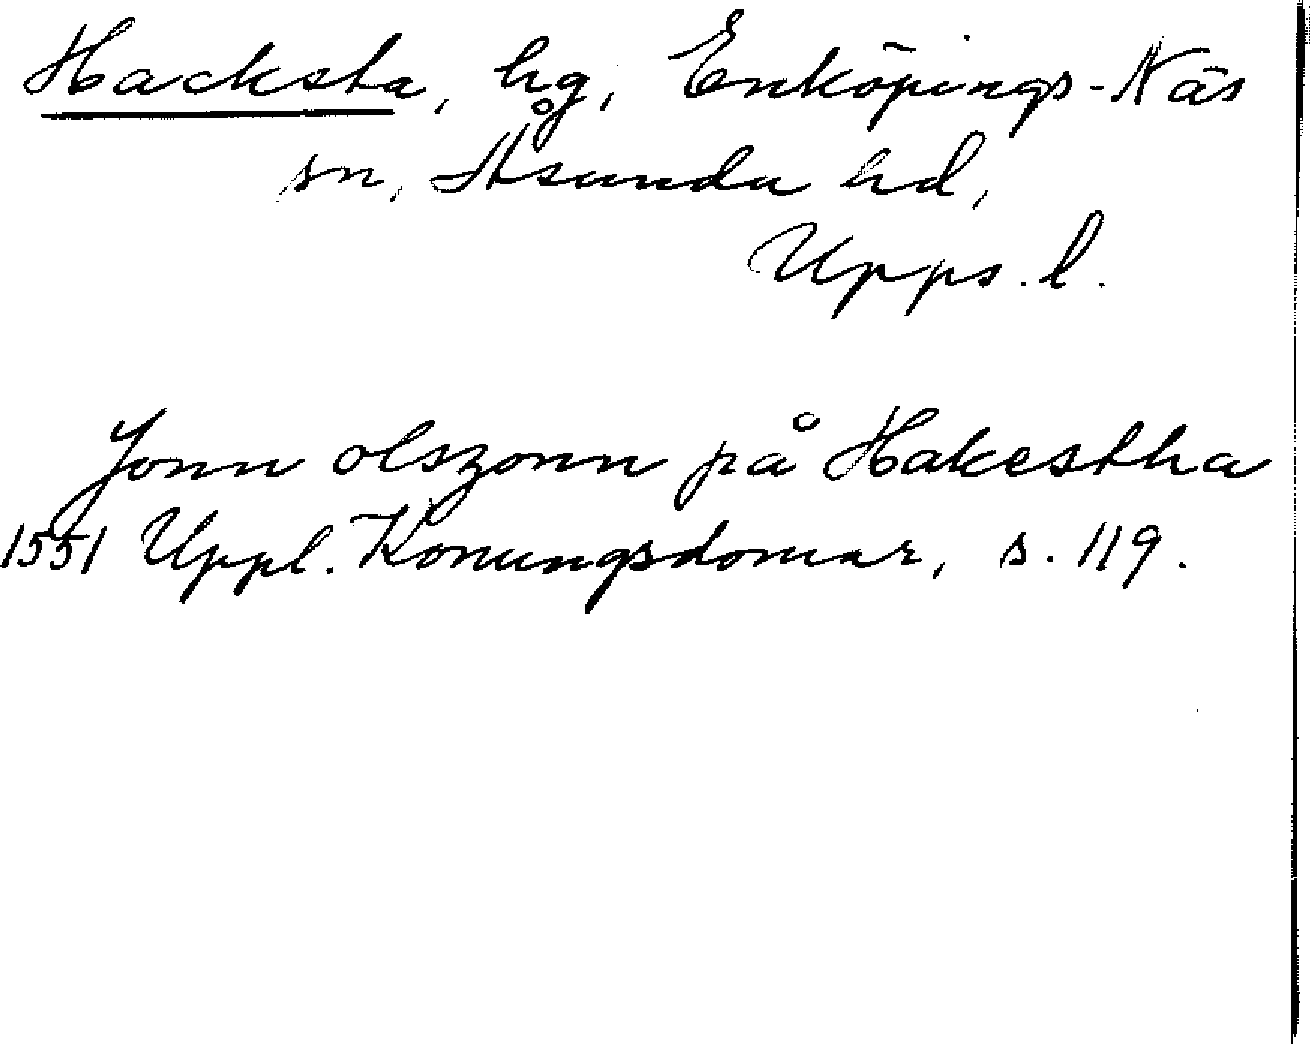 Hacksta, hg, Enköpings-Näs
sn, Åsunda hd,
Upps. l.
Jonn olszonn på Hakestha
1551 Uppl. Konungsdomar, s. 119.